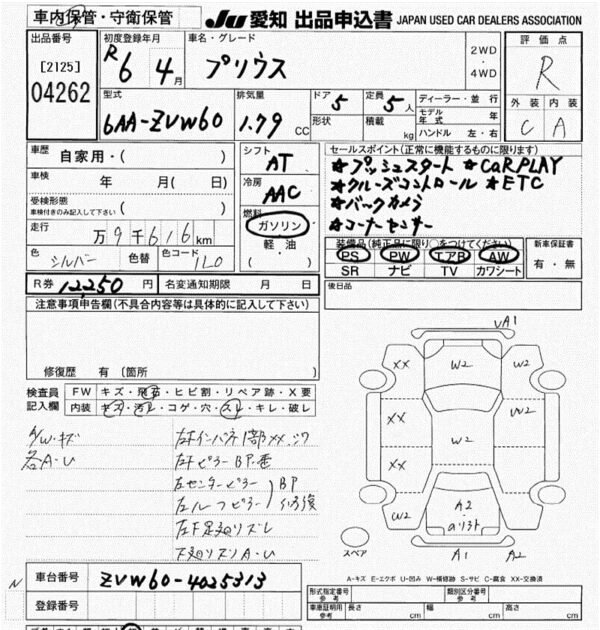 車内保管・守衛保管
JU 愛知 出品申込書 JAPAN USED CAR DEALERS ASSOCIATION
出品番号
[2125]
04262
初度登録年月
R6 4月
車名・グレード
プリウス
2WD
・
4WD
評価点
R
外装 内装
C A
型式
6AA-ZVW60
排気量
1.79 CC
ドア 5
形状
定員 5人
積載 kg
ディーラー・並行
モデル年式 年
ハンドル 左・右
車歴 自家用・( )
車検 年 月( 日)
受検形態
車検付きのみ記入して下さい ( )
走行 万9千616km
色 シルバー 色替 色コード 1L0
シフト
AT
冷房
AAC
燃料
ガソリン
軽・油
( )
セールスポイント(正常に機能するものに限ります)
★プッシュスタート ★CaRPLAY
★クルーズコントロール ★ETC
★バックカメラ
★コーナーセンサー
装備品(純正品に限り○をつけてください)
PS PW エアB AW
SR ナビ TV カワシート
新車保証書
有・無
R券 12,250円 名変通知期限 月 日
後日品
注意事項申告欄(不具合内容等は具体的に記入して下さい)
修復歴 有 〔箇所
検査員
記入欄
FW キズ・飛石・ヒビ割・リペア跡・X要
内装 キズ・汚レ・コゲ・穴・スレ・キレ・破レ
A/W・キズ
各A・U
左Fインパネ1部XX・シワ
左Fピラー BP・歪
左センターピラー
左ルーフピラー
BP
左F足廻リズレ
下廻リズリA・U
VA1
XX
W2
W2
XX
W2
XX
W2
W2
A2
A1
A2
スペア
A-キズ E-エクボ U-凹み W-補修跡 S-サビ C-腐食 XX-交換済
車台番号 ZVW60-4025313
登録番号
形式指定番号
参考
類別区分番号
参考
車庫証明用
参考
長さ cm
幅 cm
高さ cm